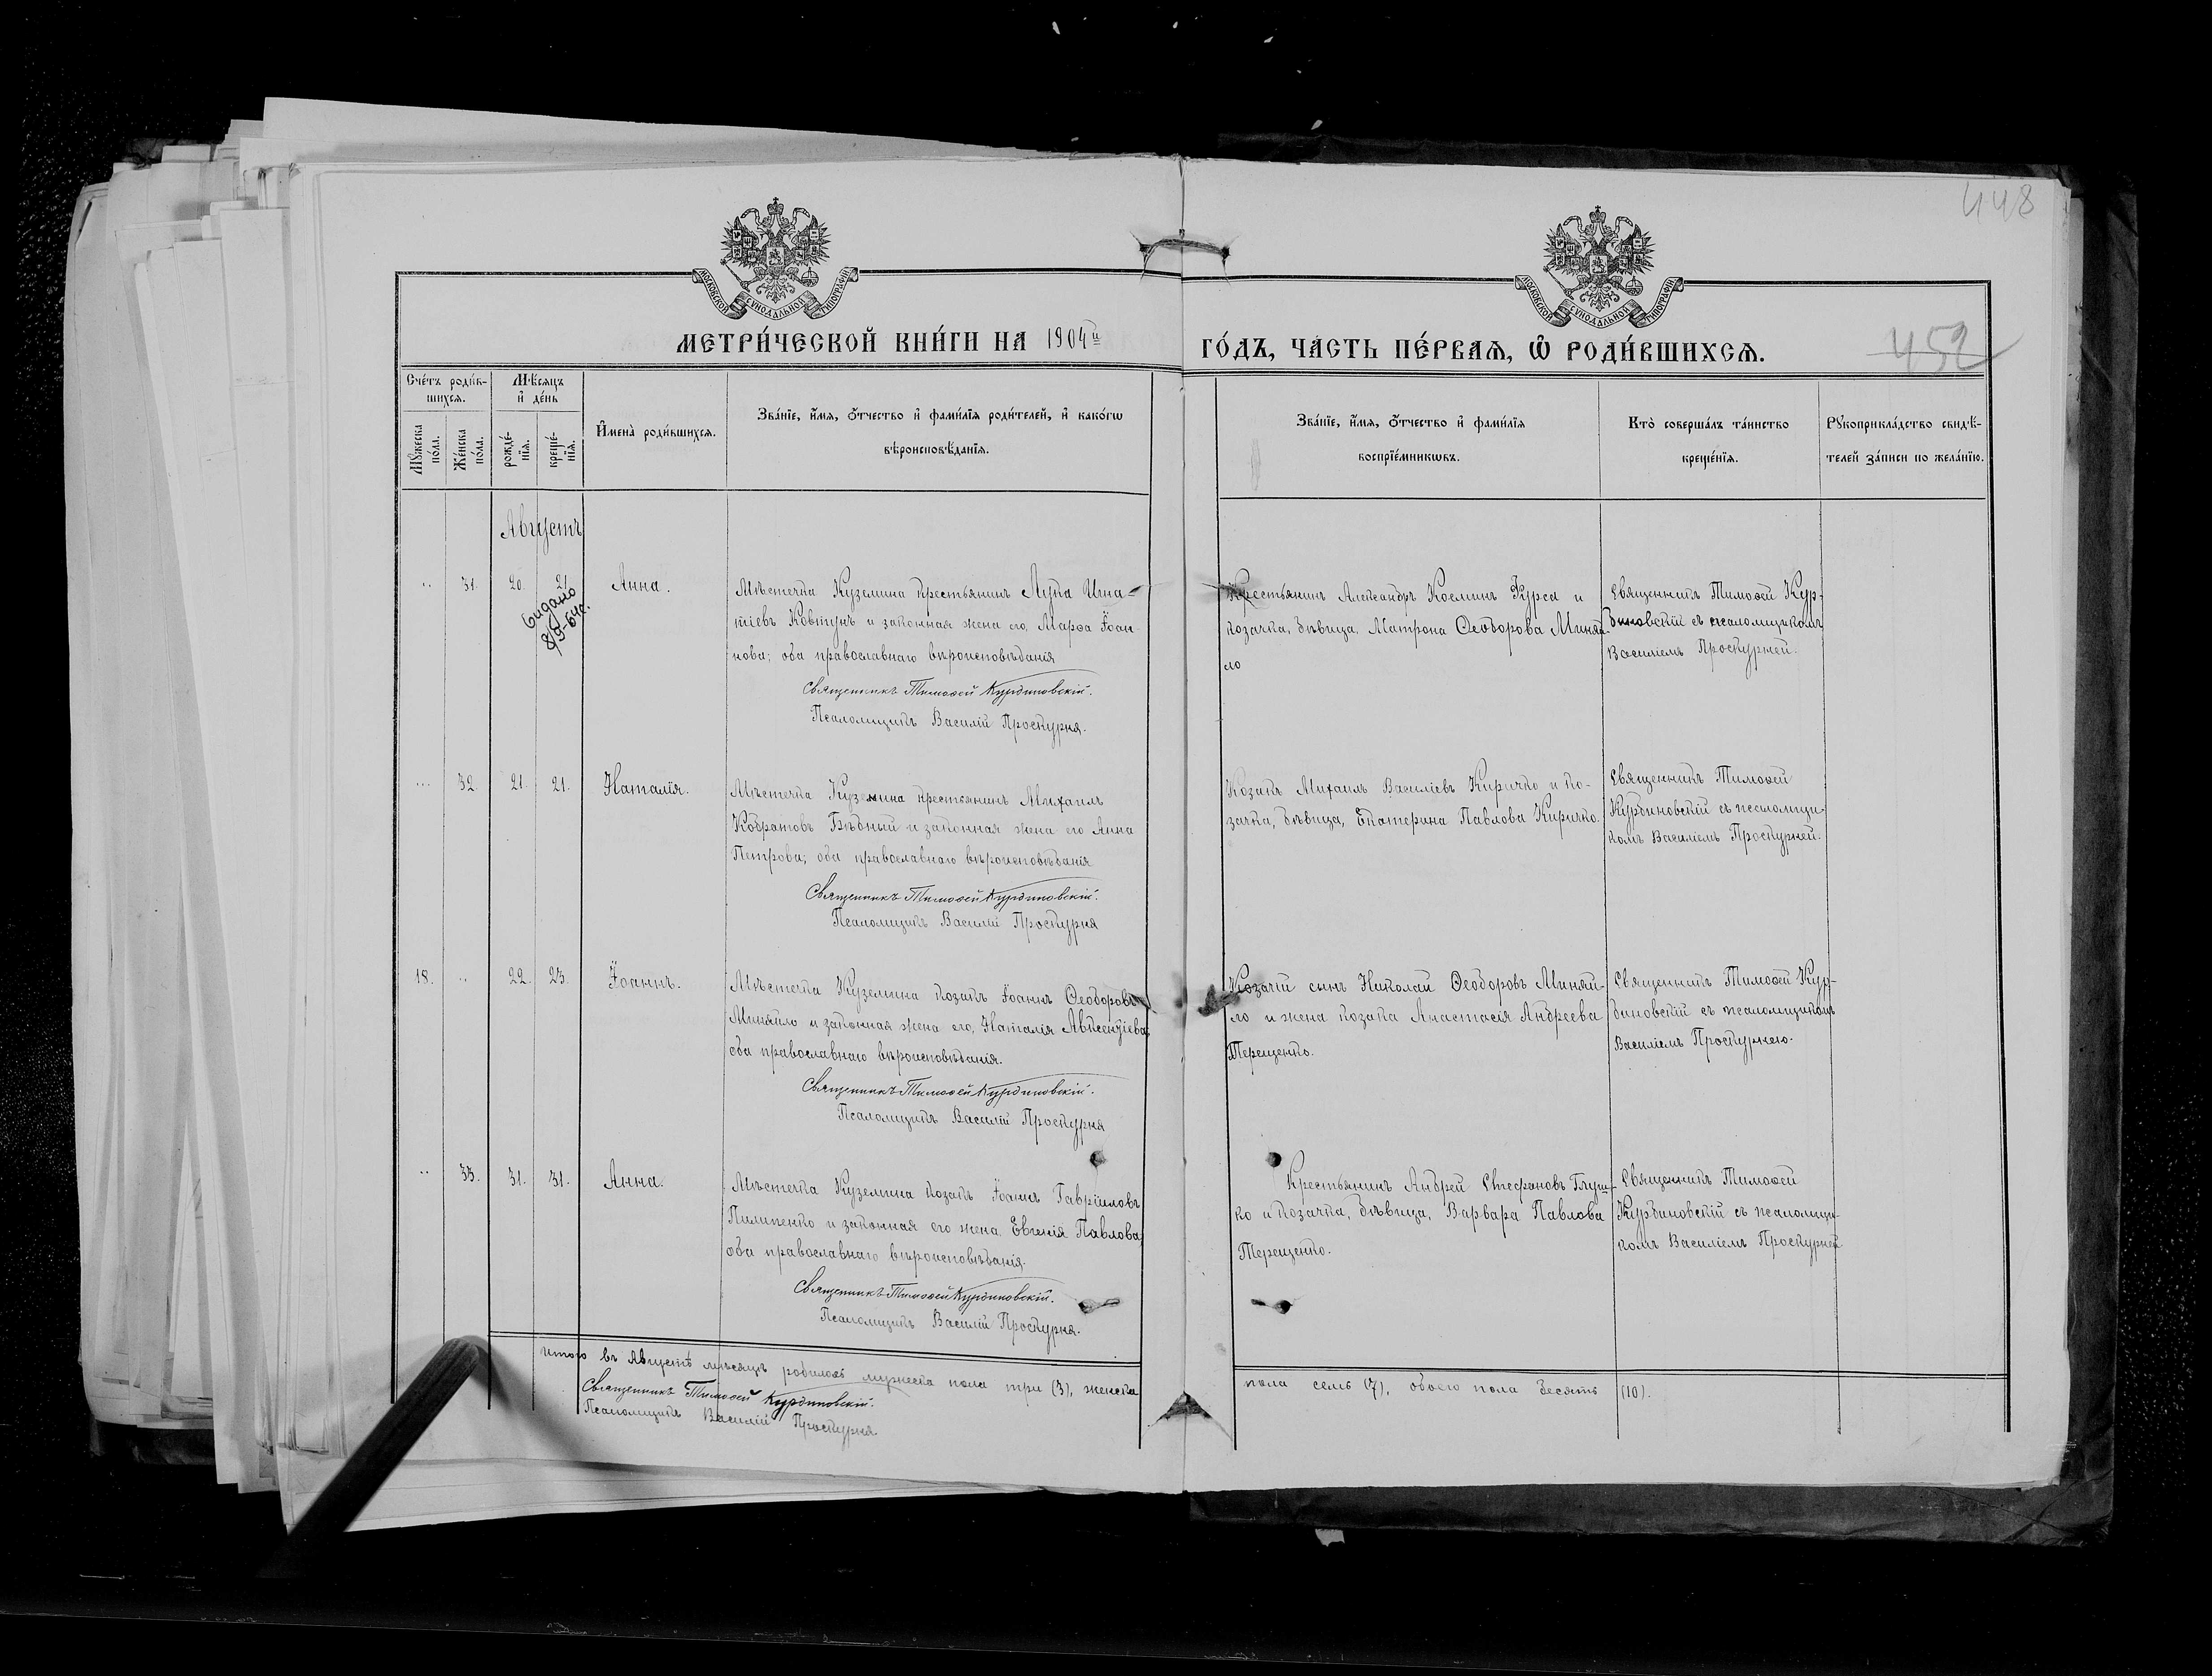 448
МОСКОВСКОЙ СѴНОДАЛЬНОЙ ТИПОГРАФІИ
МОСКОВСКОЙ СѴНОДАЛЬНОЙ ТИПОГРАФІИ
МЕТРИ́ЧЕСКОЙ КНИ́ГИ НА 1904й ГО́ДЪ, ЧА́СТЬ ПЕ́РВАѦ, Ѽ РОДИ́ВШИХСѦ.
452
Сче́тъ роди́в-
шихсѧ.
Мꙋ́жеска
по́ла.
Же́нска
по́ла.
Мѣ́сѧцъ
и҆ де́нь
рожде́-
нїѧ.
креще́-
нїѧ.
И҆мена̀ роди́вшихсѧ.
Зва́нїе, и҆́мѧ, ѻ҆́тчество и҆ фами́лїѧ роди́телей, и҆ како́гѡ
вѣроисповѣ́данїѧ.
Зва́нїе, и҆́мѧ, ѻ҆́тчество и҆ фами́лїѧ
воспрїе́мникѡвъ.
Кто̀ соверша́лъ та́инство
креще́нїѧ.
Рꙋкоприкла́дство свидѣ́-
телей за́писи по жела́нїю.
Августъ
31. 20. 21 Анна.
Видано
Мѣстечка Куземина крестьянинъ Лука Игна-
тіевъ Ковтунъ и законная жена его, Марѳа Іоан-
нова; оба православнаго вѣроисповѣданія
Священникъ Тимоѳей Курдиновскій.
Псаломщикъ Василій Проскурня.
Крестьянинъ Александръ Косминъ Фурса и
козачка, дѣвица, Матрона Ѳеодорова Миняй-
ло
Священникъ Тимоѳей Кур-
диновскій съ псаломщикомъ
Василіемъ Проскурней.
32. 21. 21. Наталія.
Мѣстечка Куземина крестьянинъ Михаилъ
Кодратовъ Бѣдный и законная жена его Анна
Петрова; оба православнаго вѣроисповѣданія
Священникъ Тимоѳей Курдиновскій.
Псаломщикъ Василій Проскурня
Козакъ Михаилъ Василіевъ Киричко и ко-
зачка, дѣвица, Екатерина Павлова Киричко.
Священникъ Тимоѳей
Курдиновскій съ псаломщи-
комъ Василіемъ Проскурней.
18. 22. 23. Іоаннъ.
Мѣстечка Куземина козакъ Іоаннъ Ѳеодоровъ
Миняйло и законная жена его, Наталія Авксентіева;
оба православнаго вѣроисповѣданія.
Священникъ Тимоѳей Курдиновскій.
Псаломщикъ Василій Проскурня
Козачій сынъ Николай Ѳеодоровъ Миняй-
ло и жена козака Анастасія Андреева
Терещенко.
Священникъ Тимоѳей Кур-
диновскій съ псаломщикомъ
Василіемъ Проскурнею.
33. 31. 31. Анна.
Мѣстечка Куземина козакъ Іоаннъ Гавріиловъ
Пилипенко и законная его жена, Евгенія Павлова;
оба православнаго вѣроисповѣданія.
Священникъ Тимоѳей Курдиновскій.
Псаломщикъ Василій Проскурня.
Крестьянинъ Андрей Стефановъ Глуш-
ко и козачка, дѣвица, Варвара Павлова
Терещенко.
Священникъ Тимоѳей
Курдиновскій съ псаломщи-
комъ Василіемъ Проскурней
Итого въ Августѣ мѣсяцѣ родилось мужеска пола три (3), женска
пола семь (7), обоего пола десять (10).
Священникъ Тимоѳей Курдиновскій.
Псаломщикъ Василій Проскурня